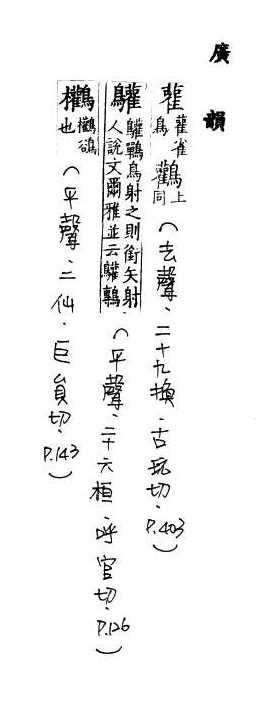 廣韻
雚 雚雀鳥 鸛上同 (去聲．二十九換．古玩切．P.403)
鸛 鸛鷒鳥射之則銜矢射人說文爾雅並云鸛鷒 (平聲．二十六桓．呼官切．P.126)
鸛鵒也 (平聲．二仙．巨員切．P.143)